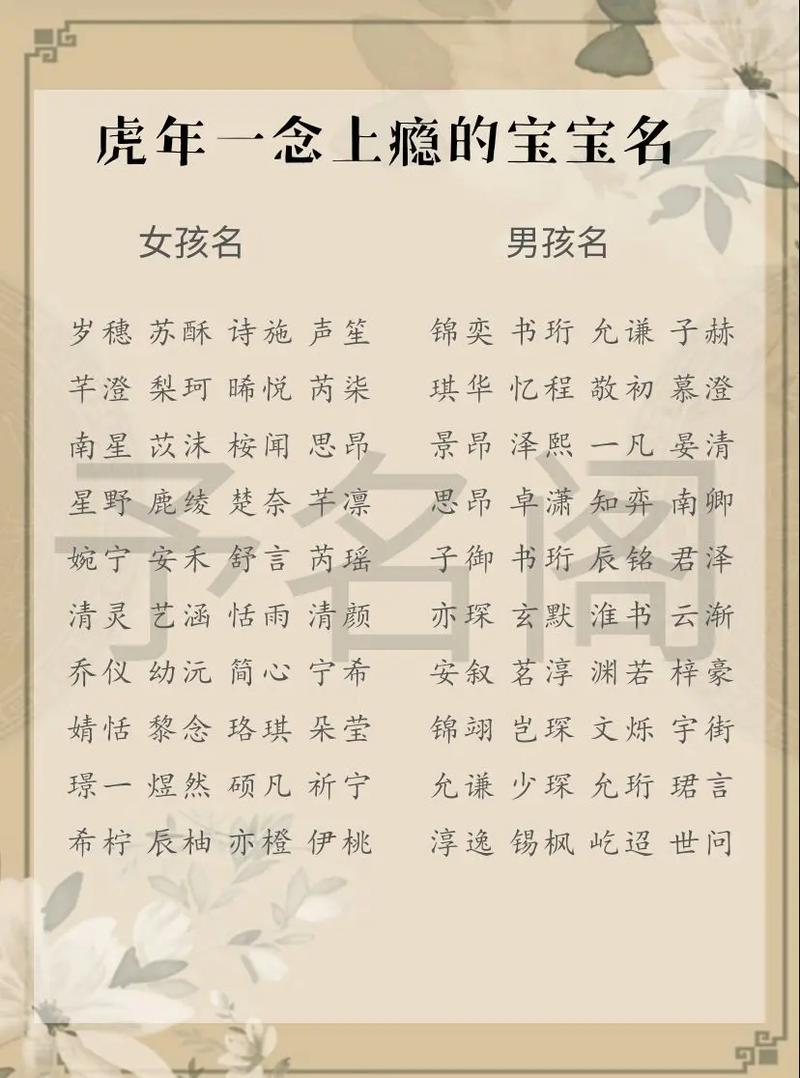 虎年一念上瘾的宝宝名
女孩名 男孩名
岁穗 苏酥 诗施 声笙 锦奕 书珩 允谦 子赫
芊澄 梨珂 晞悦 芮柒 琪华 忆程 敬初 慕澄
南星 苡沫 桉闻 思昂 景昂 泽熙 一凡 晏清
星野 鹿绫 楚奈 芊凛 思昂 卓潇 知弈 南卿
婉宁 安禾 舒言 芮瑶 子御 书珩 辰铭 君泽
清灵 艺涵 恬雨 清颜 亦琛 玄默 淮书 云渐
乔仪 幼沅 简心 宁希 安叙 茗淳 渊若 梓豪
婧恬 黎念 珞琪 朵莹 锦翊 岂琛 文烁 宇街
璟一 煜然 硕凡 祈宁 允谦 少琛 允珩 珺言
希柠 辰柚 亦橙 伊桃 淳逸 锡枫 屹迢 世问
予名阁